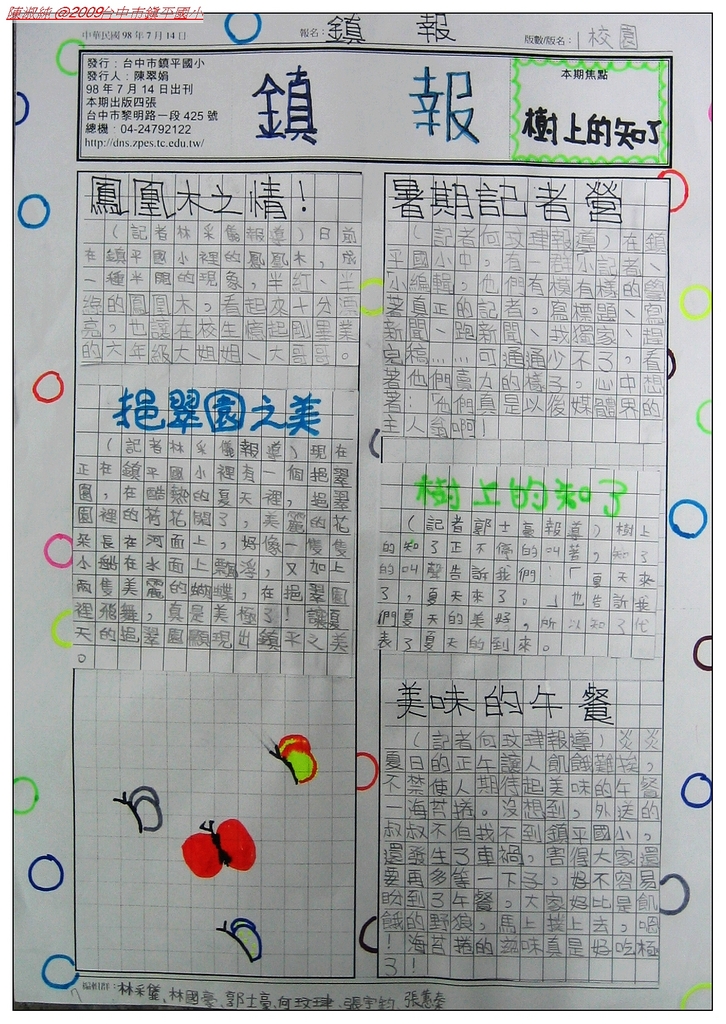 陳淑純 @2009台中市鎮平國小
中華民國 98 年 7 月 14 日
報名: 鎮 報
版數/版名: 1 校園
發行：台中市鎮平國小
發行人：陳翠娟
98 年 7 月 14 日出刊
本期出版四張
台中市黎明路一段 425 號
總機：04-24792122
http://dns.zpes.tc.edu.tw/
鎮 報
本期焦點
樹上的知了
鳳凰木之情！
（記者林采儀報導）日前
在鎮平國小裡的鳳凰木，成
一種半開的現象，半紅、半
綠的鳳凰木，看起來十分漂
亮，也讓在校生憶起剛畢業
的六年級大姐姐、大哥哥。
挹翠園之美
（記者林采儀報導）現在
正在鎮平國小裡有一個挹翠
園，在酷熱的夏天裡，挹翠
園裡的荷花開了，美麗的花
朵長在河面上，好像一隻隻
小船在水面上飄浮，又加上
兩隻美麗的蝴蝶，在挹翠園
裡飛舞，真是美極了！讓夏
天的挹翠園顯現出鎮平之美
。
暑期記者營
（記者何玟瑋報導）在鎮
平國小中，有一群「小記者、
小編輯」他們有模有樣的學
著真正的記者，寫標題、寫
新聞、跑新聞、找獨家、趕
完稿……可通通少不了，看
著他們賣力的樣子，心中想
著：「他們真是以後媒體界的
主人翁啊！
樹上的知了
（記者郭士豪報導）樹上
的知了正不停的叫著，知了
的叫聲告訴我們：「夏天來
了，夏天來了。」也告訴我
們夏天的美好，所以知了代
表了夏天的到來。
美味的午餐
（記者何玟瑋報導）炎炎
夏日的正午讓人飢餓難挨，
不禁使人期待起美味的午餐
—海苔捲。沒想到，外送的
叔叔不但找不到鎮平國小，
還發生了車禍，害得大家還
要再多等一下子，好不容易
盼到了午餐，大家好比是飢
餓的野狼，馬上撲上去，嗯
！海苔捲的滋味真是好吃極
了！
編輯群：林采儀、林國豪、郭士豪、何玟瑋、張宇鈞、張蕙蓁